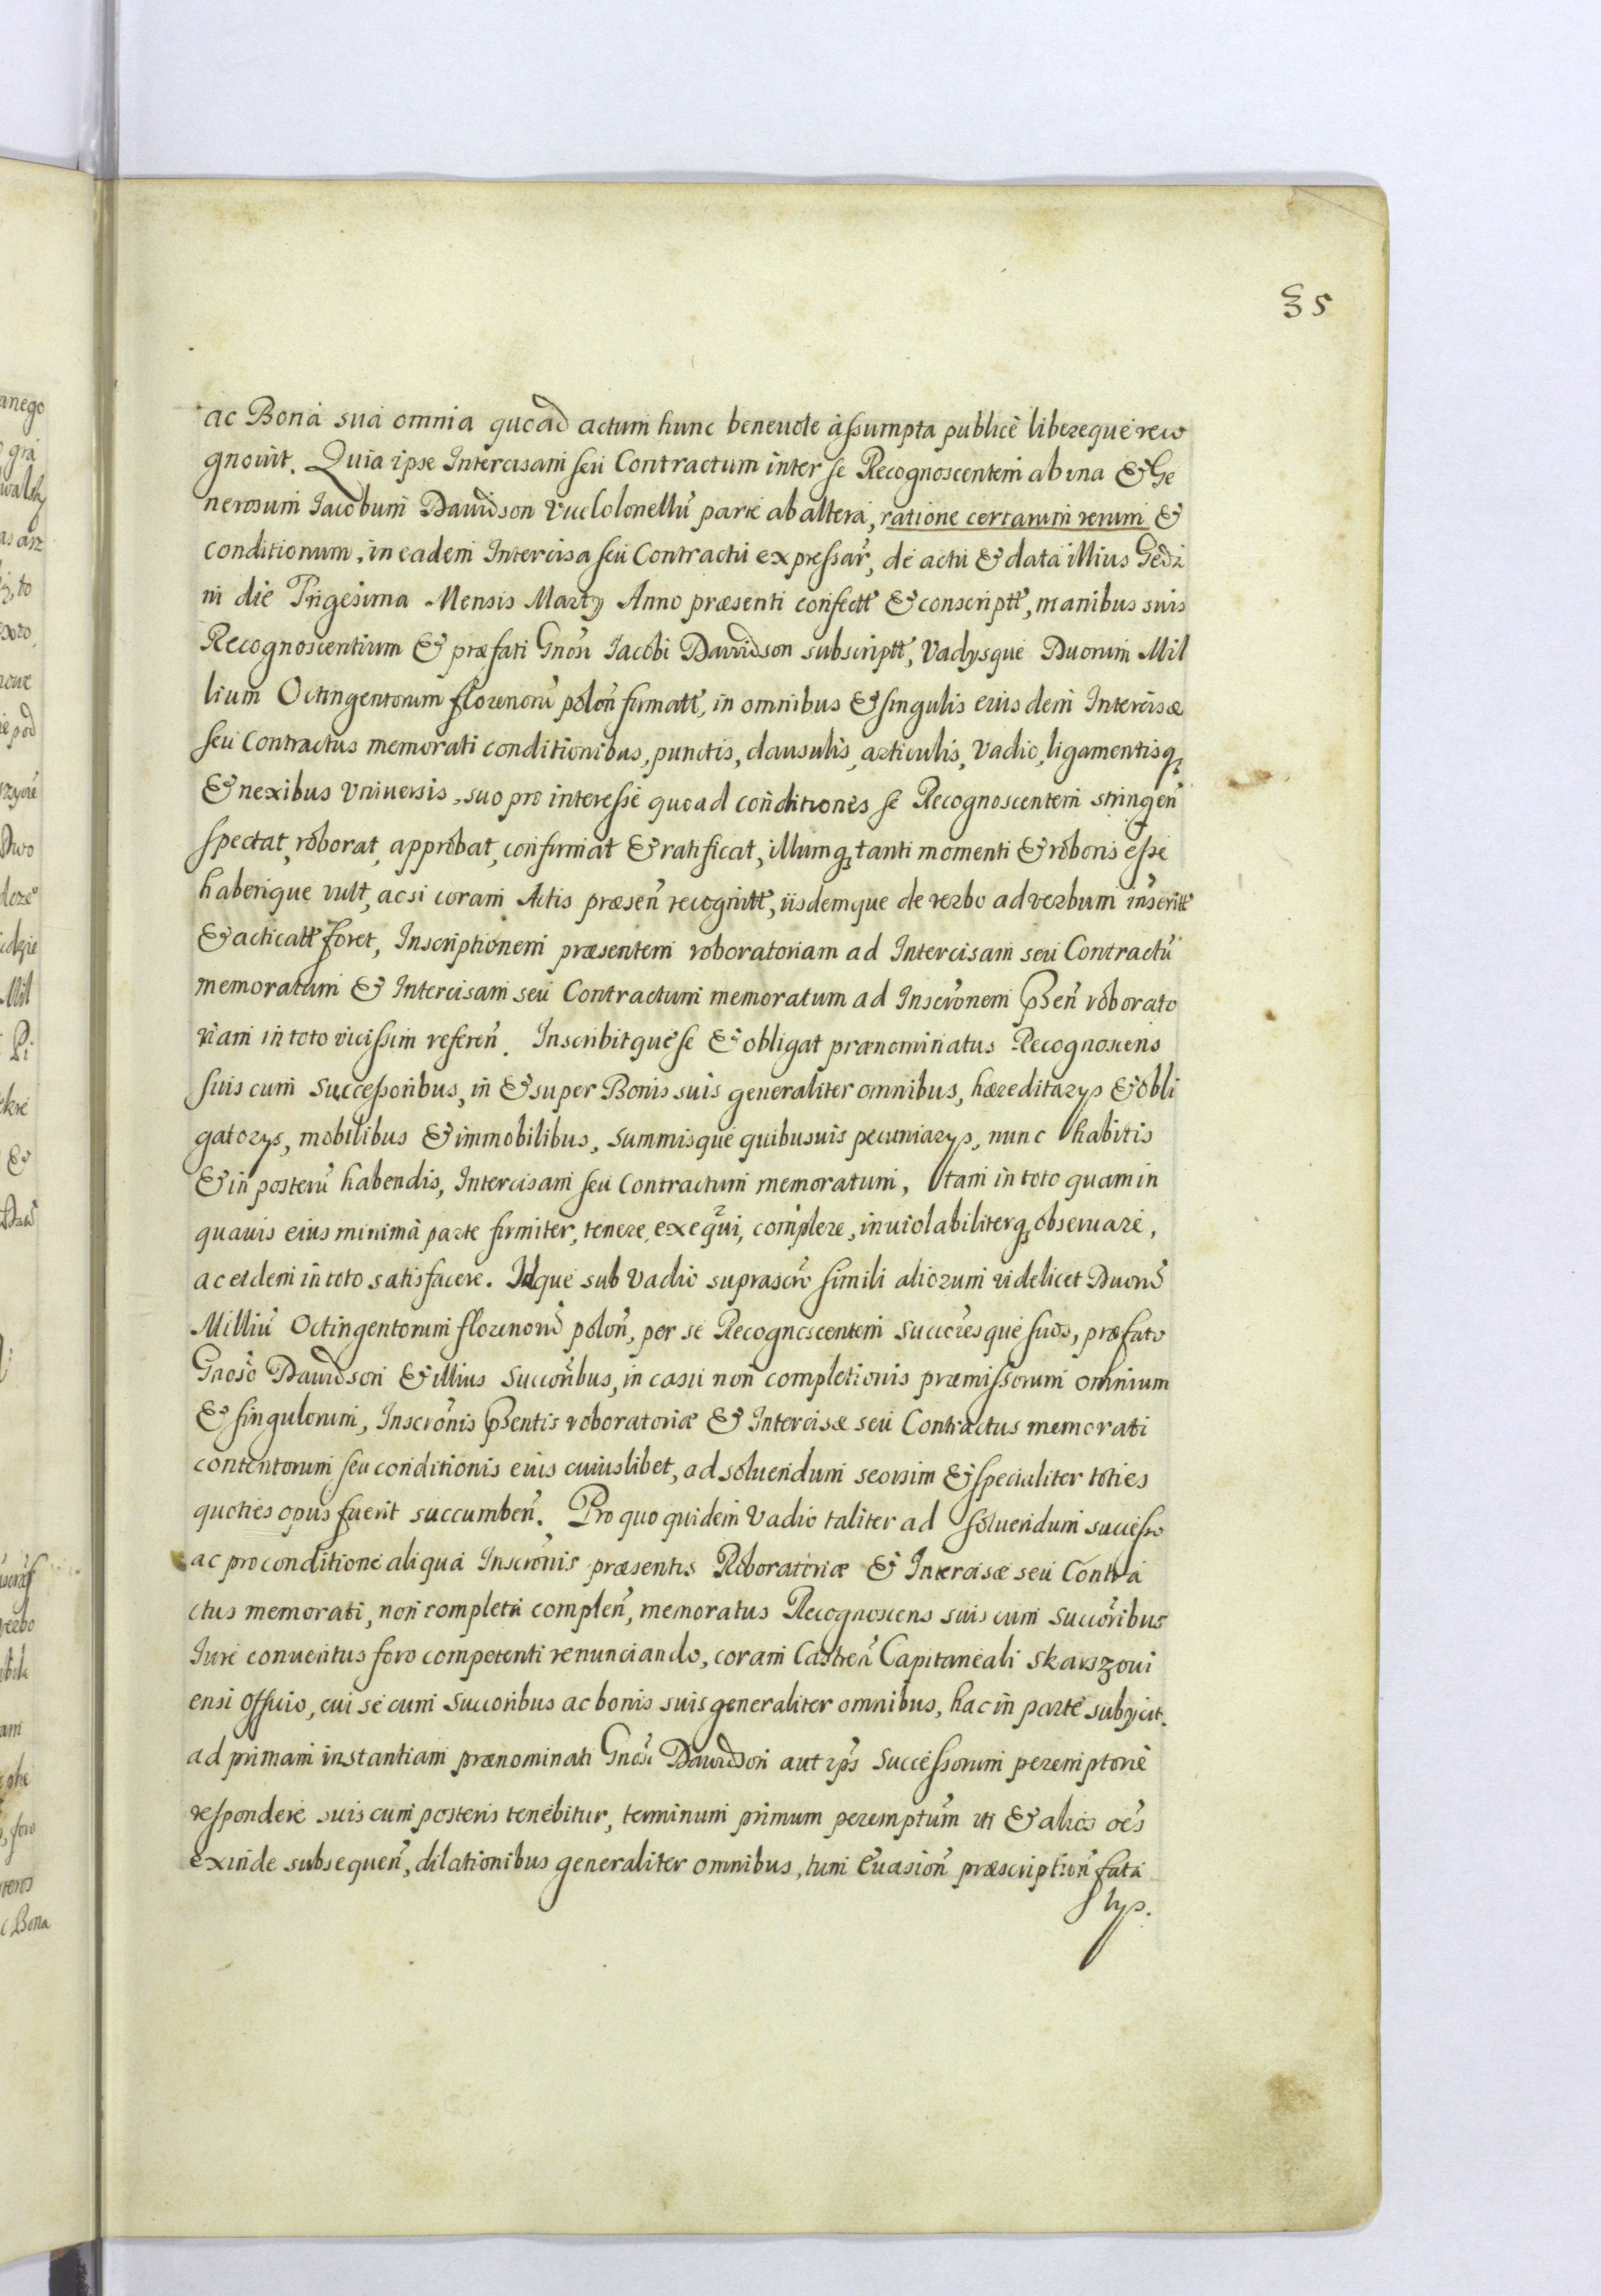 35
ac Bona sua omnia quoad actum hunc beneuole assumpta publicè libereque reco
gnouit. Quia ipse Intercisam seu Contractum inter se Recognoscentem ab vna & Ge
nerosum Iacobum Dawidson ViceColonellū parte ab altera, ratione certarum rerum &
conditionum, in eadem Intercisa seu Contractu expressar̃, de actu & data illius Gedz
ni die Trigesima Mensis Marty Anno præsenti confectt̃ & conscriptt̃, manibus suis
Recognoscentium & præfati Gnosi Iacobi Dawidson subscriptt̃, Vadysque Duorum Mil
lium Octingentorum florenorū polon̄ firmatt̃, in omnibus & singulis eiusdem Intercisæ
seu Contractus memorati conditionibus, punctis, clausulis, articulis, Vadio, ligamentisq
& nexibus Vniuersis, suo pro interesse quoad conditiones se Recognoscentem stringen̄
spectat, roborat, approbat, confirmat & ratificat, illumq tanti momenti & roboris esse
haberique vult, acsi coram Actis præsen̄ recognitt̃, iisdemque de verbo ad verbum inseritt̃
& acticatt̃ foret, Inscriptionem præsentem roboratoriam ad Intercisam seu Contractū
memoratum & Intercisam seu Contractum memoratum ad Inscr̄onem p̄sen̄ roborato
riam in toto vicissim referen̄. Inscribitque se & obligat prænominatus Recognoscens
suis cum Successoribus, in & super Bonis suis generaliter omnibus, hæreditarys & obli
gatorys, mobilibus & immobilibus, summisque quibusuis pecuniarys, nunc habitis
& in posterū habendis, Intercisam seu Contractum memoratum, tam in toto quam in
quauis eius minima parte firmiter, tenere, exequi, complere, inuiolabiliterq obseruare,
ac eidem in toto satisfacere. Idque sub Vadio suprascr̄o simili aliorum videlicet Duorū
Milliū Octingentorum florenorū polon̄, per se Recognoscentem Succoresque suos, præfato
Gnoso Dawidson & illius Succoribus, in casu non completionis præmissorum omnium
& singulorum, Inscr̄onis p̄sentis roboratoriæ & Intercisæ seu Contractus memorati
contentorum seu conditionis eius cuiuslibet, ad soluendum seorsim & specialiter toties
quoties opus fuerit succumben̄. Pro quo quidem Vadio taliter ad soluendum successo
ac pro conditione aliqua Inscr̄onis præsentis Roboratoriæ & Intercisæ seu Contra
ctus memorati, non completa complen̄, memoratus Recognoscens suis cum Succoribus
Iure conuentus foro competenti renunciando, coram Castren̄ Capitaneali Skarszoui
ensi Officio, cui se cum Succoribus ac bonis suis generaliter omnibus, hac in parte subycit.
ad primam instantiam prænominati Gnosi Dawidson aut ips̄ Successorum peremptorie
respondere suis cum posteris tenebitur, terminum primum peremptum vti & alios oēs
exinde subsequen̄, dilationibus generaliter omnibus, tum Euasion̄ præscription̄ fata
lys.